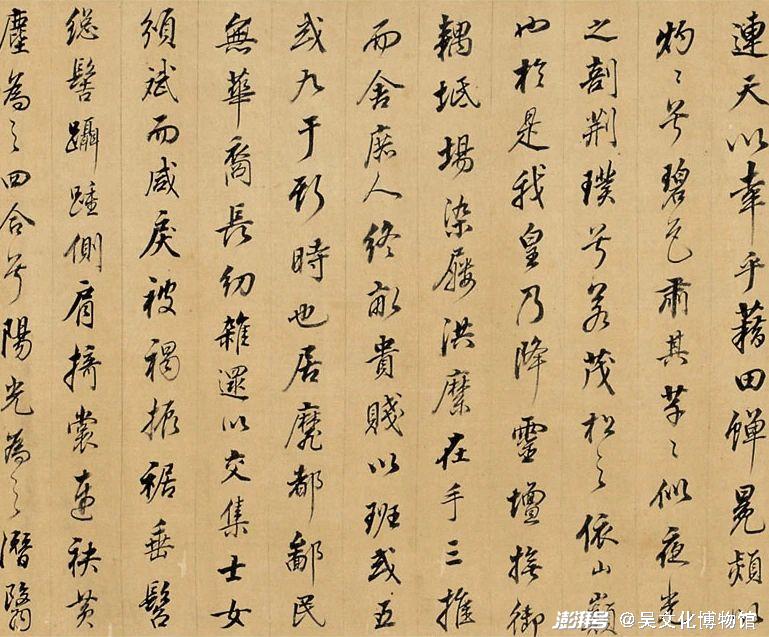 連天以幸乎藉田蟬冕熲以
灼〻兮碧色肅其芊〻似夜光
之剖荆璞兮若茂松之依山巔
也於是我皇乃降靈壇撫御
耦坻場染屨洪縻在手三推
而舍庶人終畝貴賤以班或五
或九于斯時也居靡都鄙民
無華裔長幼雜遝以交集士女
頒斌而咸戾被褐振裾垂髫
総髻躡踵側肩掎裳連袂黄
塵為之四合兮陽光為之潛翳
澎湃号 @吴文化博物馆